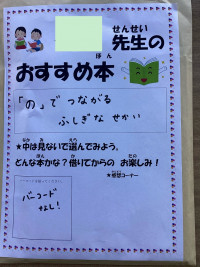 せんせい
先生の
ほん
おすすめ本
「の」で つながる
ふしぎな せかい
なか み えら
★中は見ないで選んでみよう。
ほん か たの
どんな本かな?借りてからの お楽しみ!
★感想コーナー
バーコード
なし!